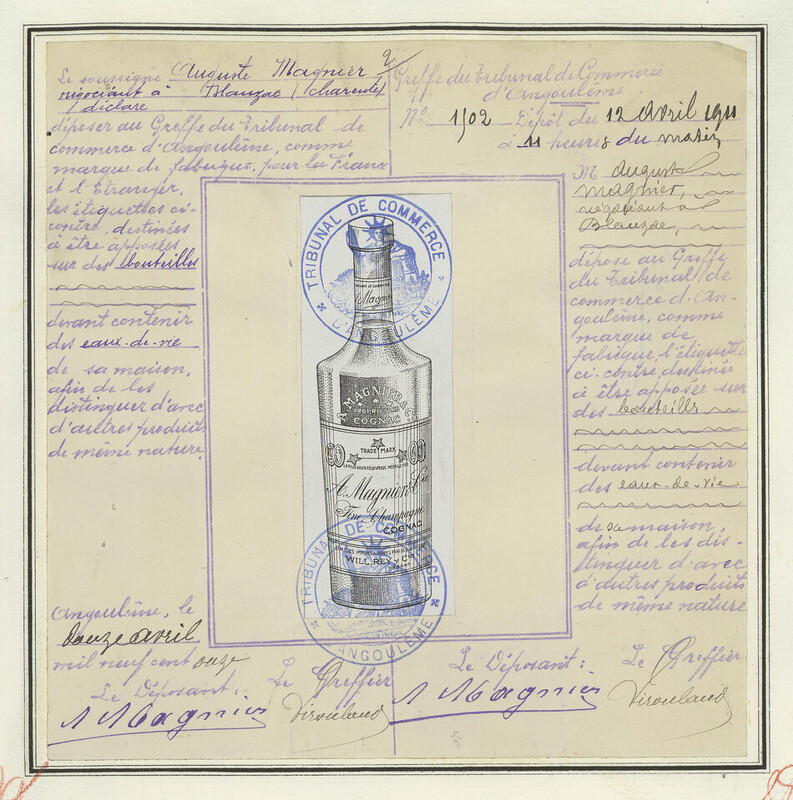 Le soussigné Auguste Magnier
négociant à Blanzac (Charente)
déclare
déposer au Greffe du Tribunal de
commerce d'Angoulême, comme
marque de fabrique, pour la France
et l'Etranger,
les étiquettes ci-
contre, destinées
à être apposées
sur des bouteilles
devant contenir
des eaux-de-vie
de sa maison,
afin de les
distinguer d'avec
d'autres produits
de même nature.
Angoulême, le
douze avril
mil neuf cent onze
Le Déposant :
A Magnier
Le Greffier
Virouleaud
TRIBUNAL DE COMMERCE
D'ANGOULÊME
Magnier
A. MAGNIER & Co
PROPRIETORS
COGNAC
TRADE MARK
A. Magnier & Cie
Fine Champagne
COGNAC
WILL. REY y Cia
TRIBUNAL DE COMMERCE
D'ANGOULÊME
Greffe du Tribunal de Commerce
d'Angoulême
No 1502 Dépôt du 12 Avril 1911
à 11 heures du matin
M Auguste
Magnier,
négociant à
Blanzac,
dépose au Greffe
du Tribunal de
commerce d'An-
goulême, comme
marque de
fabrique, l'étiquette
ci-contre, destinée
à être apposée sur
des bouteilles
devant contenir
des eaux-de-vie
de sa maison,
afin de les dis-
tinguer d'avec
d'autres produits
de même nature
Le Déposant :
A Magnier
Le Greffier
Virouleaud